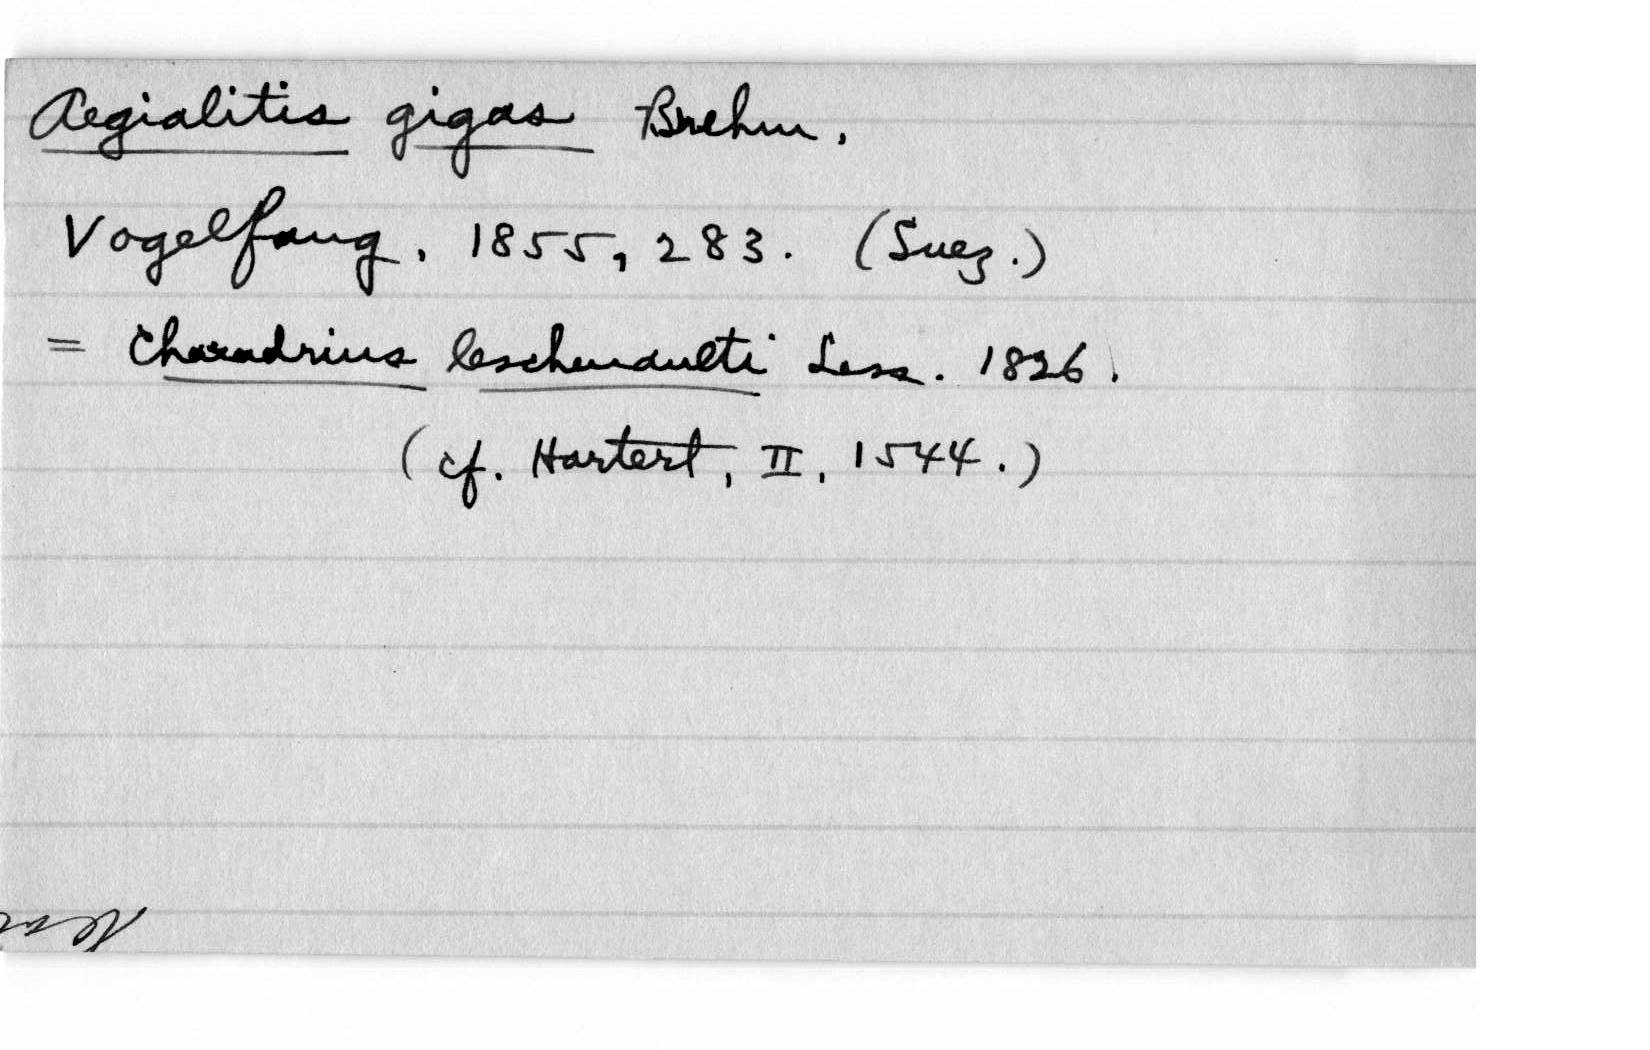 Aegialitis gigas Brehm.
Vogelfang, 1855, 283. (Suez.)
= Charadrius leschenaulti Less. 1826.
(cf. Hartert, II, 1544.)